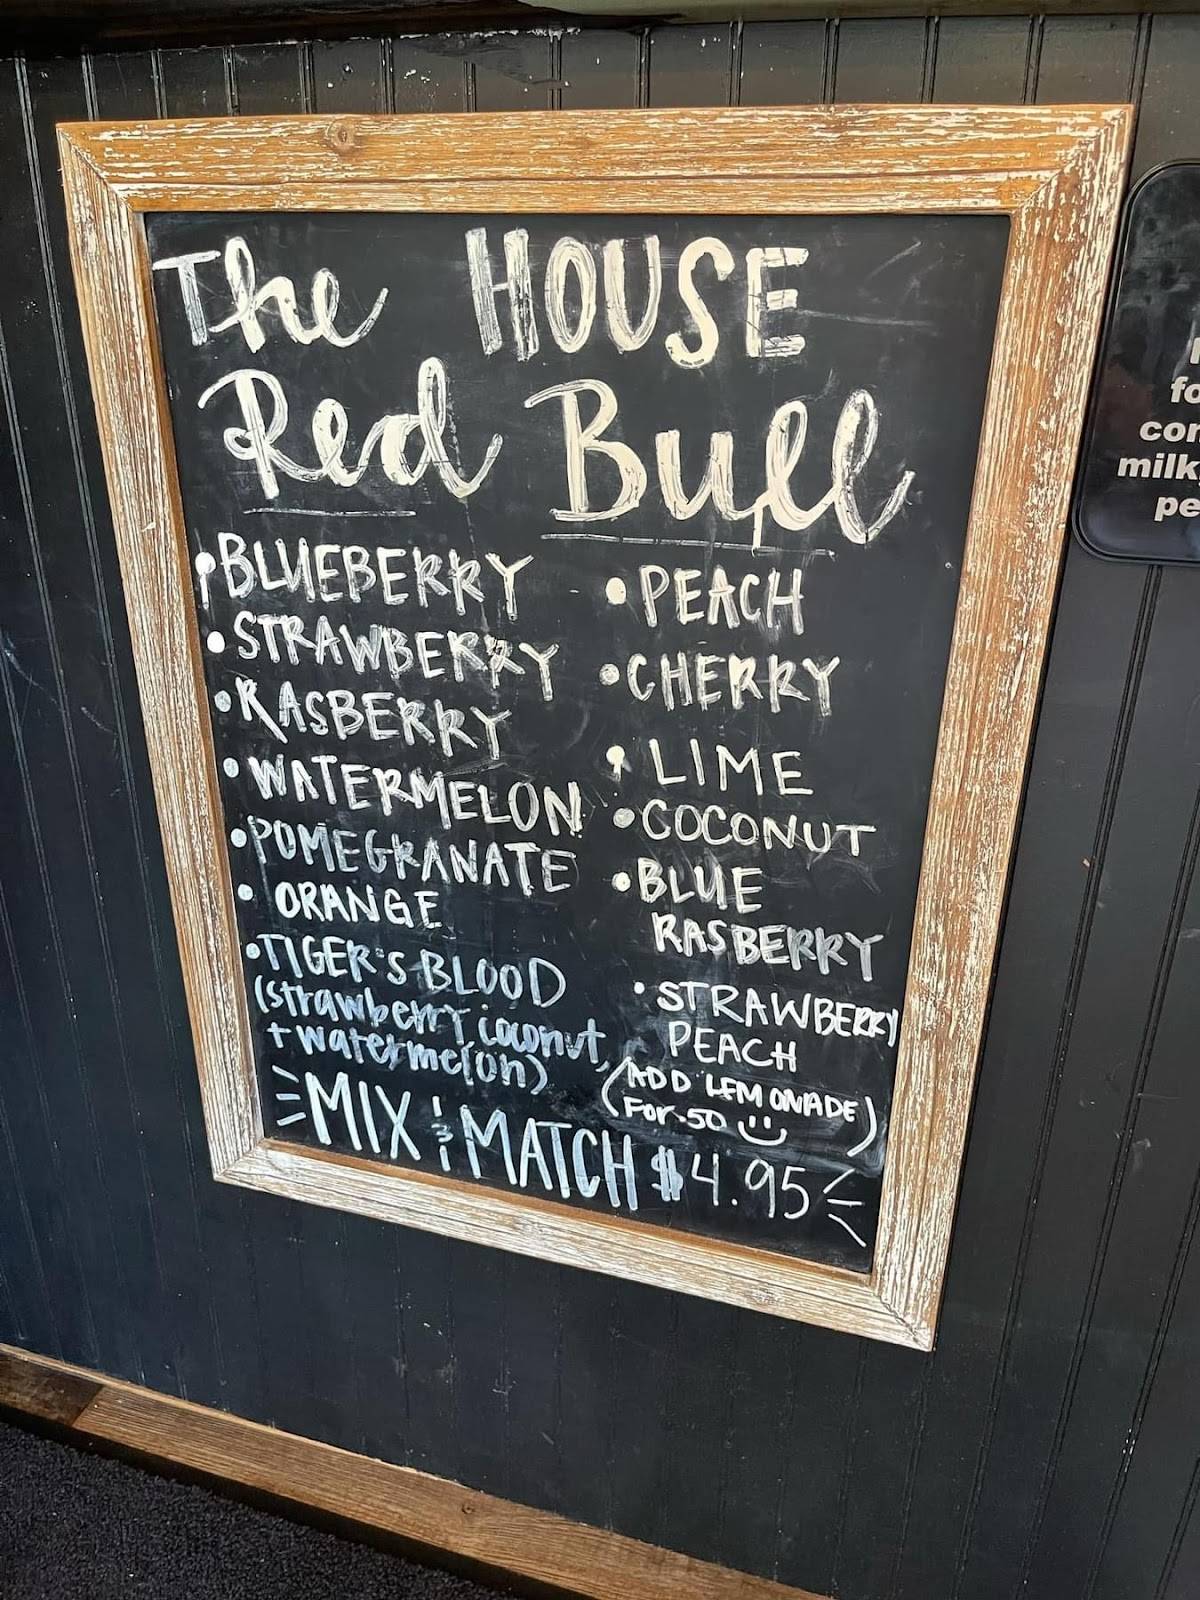 The HOUSE
Red Bull
• BLUEBERRY
• STRAWBERRY
• RASBERRY
• WATERMELON
• POMEGRANATE
• ORANGE
• TIGER'S BLOOD
(strawberry, coconut,
+ watermelon)
• PEACH
• CHERRY
• LIME
• COCONUT
• BLUE
RASBERRY
• STRAWBERRY
PEACH
(ADD LEMONADE)
(FOR .50
MIX & MATCH $4.95
milk